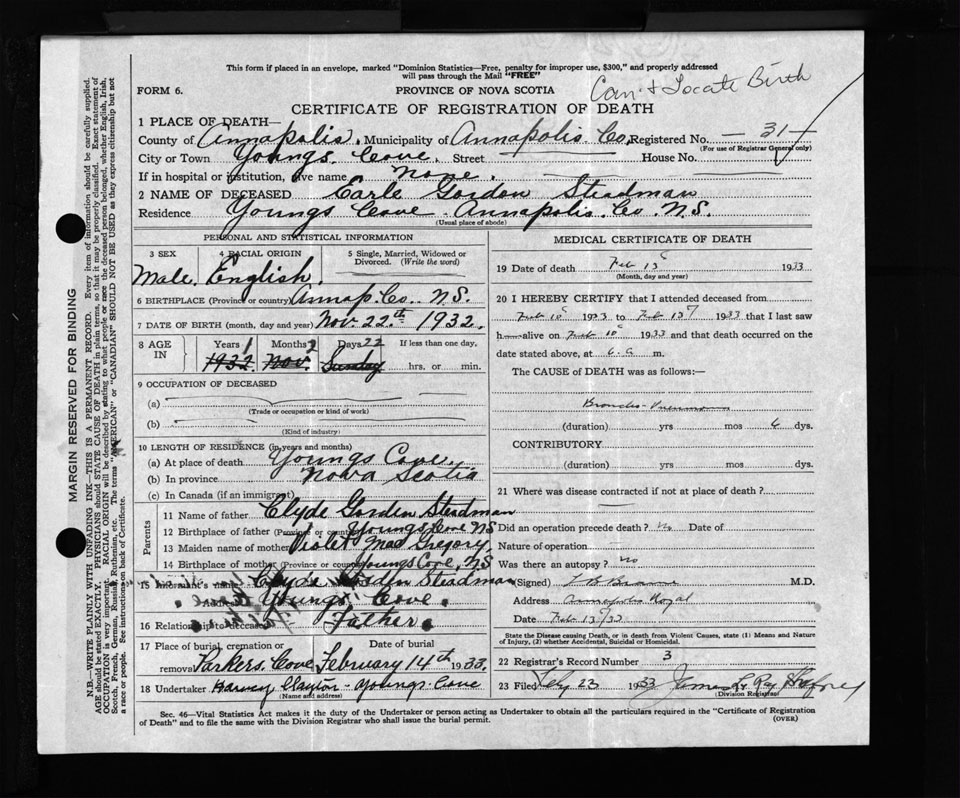 This form if placed in an envelope, marked "Dominion Statistics—Free, penalty for improper use, $300," and properly addressed
will pass through the Mail "FREE"
FORM 6.
PROVINCE OF NOVA SCOTIA
Can't Locate Birth
CERTIFICATE OF REGISTRATION OF DEATH
1 PLACE OF DEATH—
County of Annapolis, Municipality of Annapolis Co, Registered No. —31—
(For use of Registrar General only)
City or Town Youngs Cove. Street House No.
If in hospital or institution, give name None.
2 NAME OF DECEASED Earle Gordon Steadman
Residence Youngs Cove Annapolis. Co. N.S.
(Usual place of abode)
PERSONAL AND STATISTICAL INFORMATION
3 SEX 4 RACIAL ORIGIN 5 Single, Married, Widowed or Divorced. (Write the word)
Male. English.
6 BIRTHPLACE (Province or country) Annap. Co. N.S.
7 DATE OF BIRTH (month, day and year) Nov. 22th 1932.
8 AGE IN Years Months 2 Days 22 If less than one day.
1932 Nov. Sunday hrs. or min.
9 OCCUPATION OF DECEASED
(a)
(Trade or occupation or kind of work)
(b)
(Kind of industry)
10 LENGTH OF RESIDENCE (in years and months)
(a) At place of death Youngs Cove.
(b) In province Nova Scotia
(c) In Canada (if an immigrant)
Parents
11 Name of father Clyde Gordon Steadman
12 Birthplace of father (Province or country) Youngs Cove NS
13 Maiden name of mother Violet Mac Gregory
14 Birthplace of mother (Province or country) Youngs Cove, N.S
15 Informant's name Clyde Gordon Steadman
Address Youngs Cove.
16 Relationship to deceased Father.
17 Place of burial, cremation or removal Date of burial
Parkers Cove February 14th 1933.
18 Undertaker Harvey Clayton - Youngs Cove
(Name and address)
MEDICAL CERTIFICATE OF DEATH
19 Date of death Feb 13 1933
(Month, day and year)
20 I HEREBY CERTIFY that I attended deceased from
Feb 10 1933 to Feb 13 1933 that I last saw
h alive on Feb 10 1933 and that death occurred on the
date stated above, at 6. a m.
The CAUSE of DEATH was as follows:—
Broncho-Pneumonia
(duration) yrs mos 6 dys.
CONTRIBUTORY
(duration) yrs mos dys.
21 Where was disease contracted if not at place of death?
Did an operation precede death? No Date of
Nature of operation
Was there an autopsy? no
(Signed) M.D.
Address Annapolis Royal
Date Feb 13/33
State the Disease causing Death, or in death from Violent Causes, state (1) Means and Nature of Injury, (2) whether Accidental, Suicidal or Homicidal.
22 Registrar's Record Number 3
23 Filed Feby 23 1933
(Division Registrar)
Sec. 46—Vital Statistics Act makes it the duty of the Undertaker or person acting as Undertaker to obtain all the particulars required in the "Certificate of Registration
of Death" and to file the same with the Division Registrar who shall issue the burial permit.
(OVER)
MARGIN RESERVED FOR BINDING
N.B.—WRITE PLAINLY WITH UNFADING INK—THIS IS A PERMANENT RECORD. Every item of information should be carefully supplied.
AGE should be stated EXACTLY. PHYSICIANS should STATE CAUSE OF DEATH in plain terms, so that it may be properly classified. Exact statement of
OCCUPATION is very important. RACIAL ORIGIN will be described by stating to what people or race the deceased person belonged, whether English, Irish,
Scotch, French, German, Russian, Ruthenian, etc. The terms "AMERICAN" or "CANADIAN" SHOULD NOT BE USED as they express citizenship but not
a race or people. See instructions on back of Certificate.